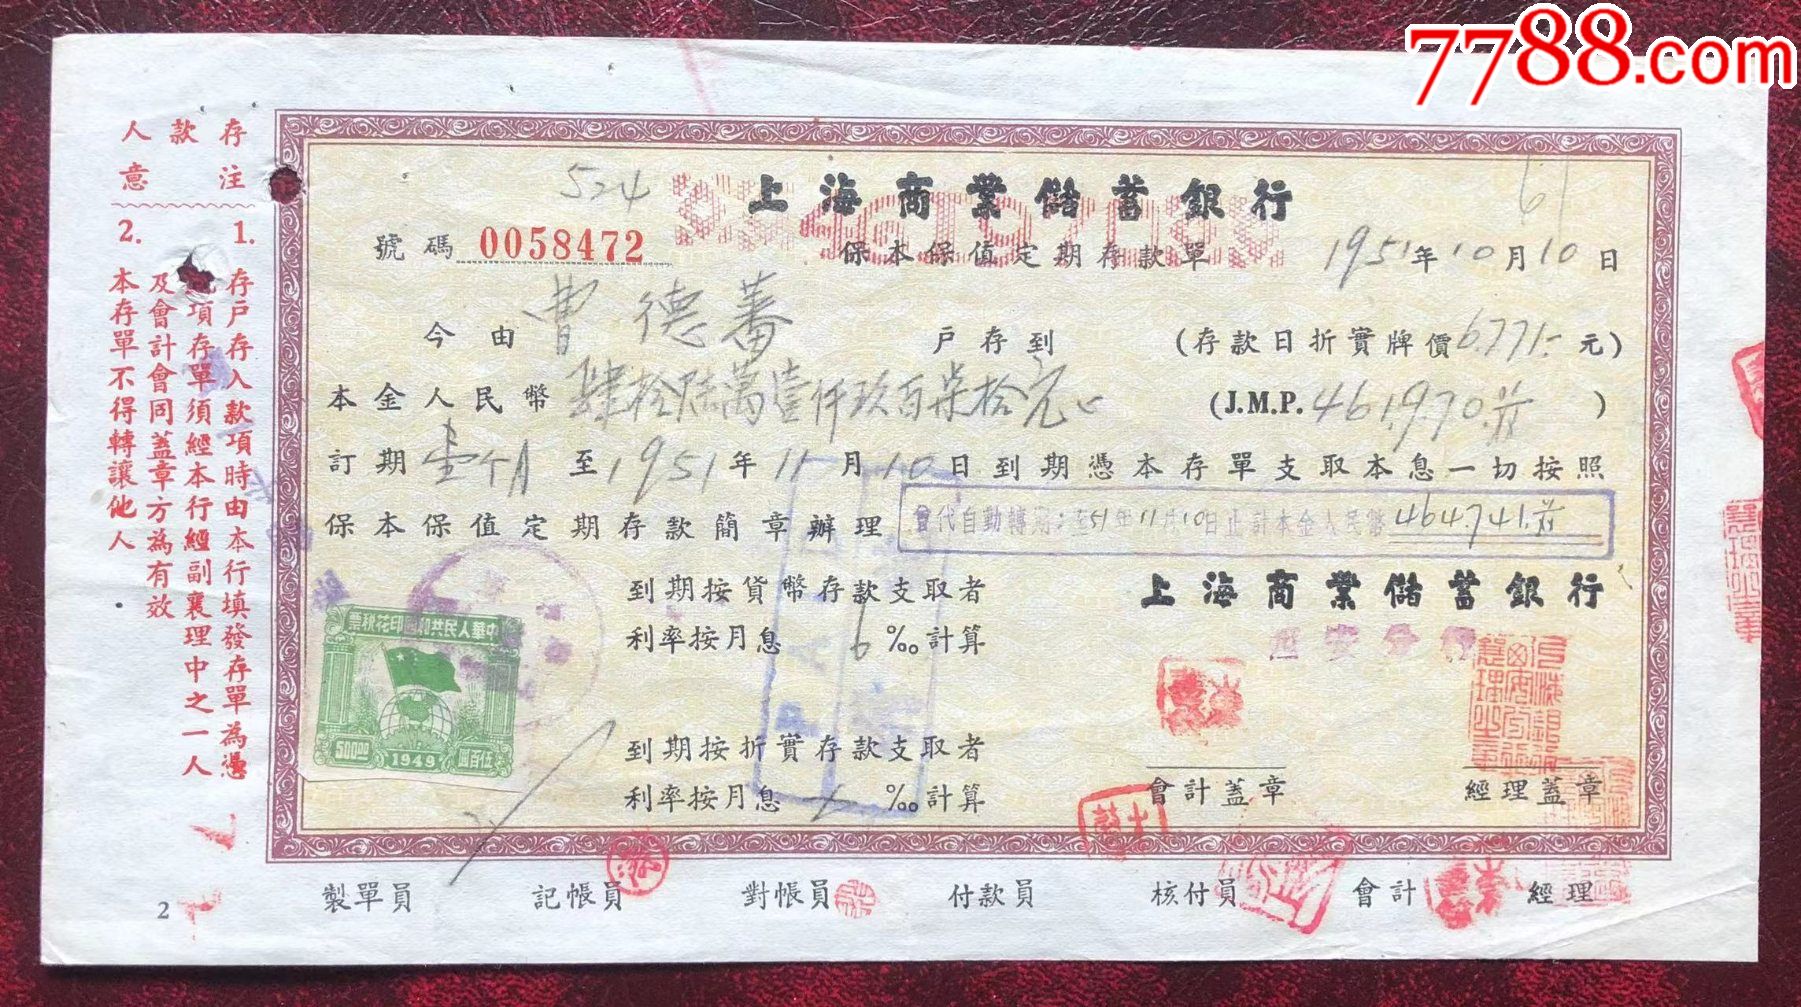 7788.com
存款人
注意
1. 存戶存入款項時由本行填發存單為憑
項存單須經本行經副襄理中之一人
及會計會同蓋章方為有效
2. 本存單不得轉讓他人
524
上海商業儲蓄銀行
號碼 0058472
保本保值定期存款單
1951年10月10日
今由曹德蕃戶存到 (存款日折實牌價6,771.-元)
本金人民幣肆拾陸萬壹仟玖百柒拾元 (J.M.P. 461,970.)
訂期壹个月至1951年11月10日到期憑本存單支取本息一切按照
保本保值定期存款簡章辦理
代自動轉 至51年11月10日止計本金人民幣464,741.
到期按貨幣存款支取者
利率按月息6‰計算
到期按折實存款支取者
利率按月息‰計算
上海商業儲蓄銀行
會計蓋章
經理蓋章
中華人民共和國印花稅票
500.00
1949
伍百圓
PAID
製單員 記帳員 對帳員 付款員 核付員 會計 經理
2